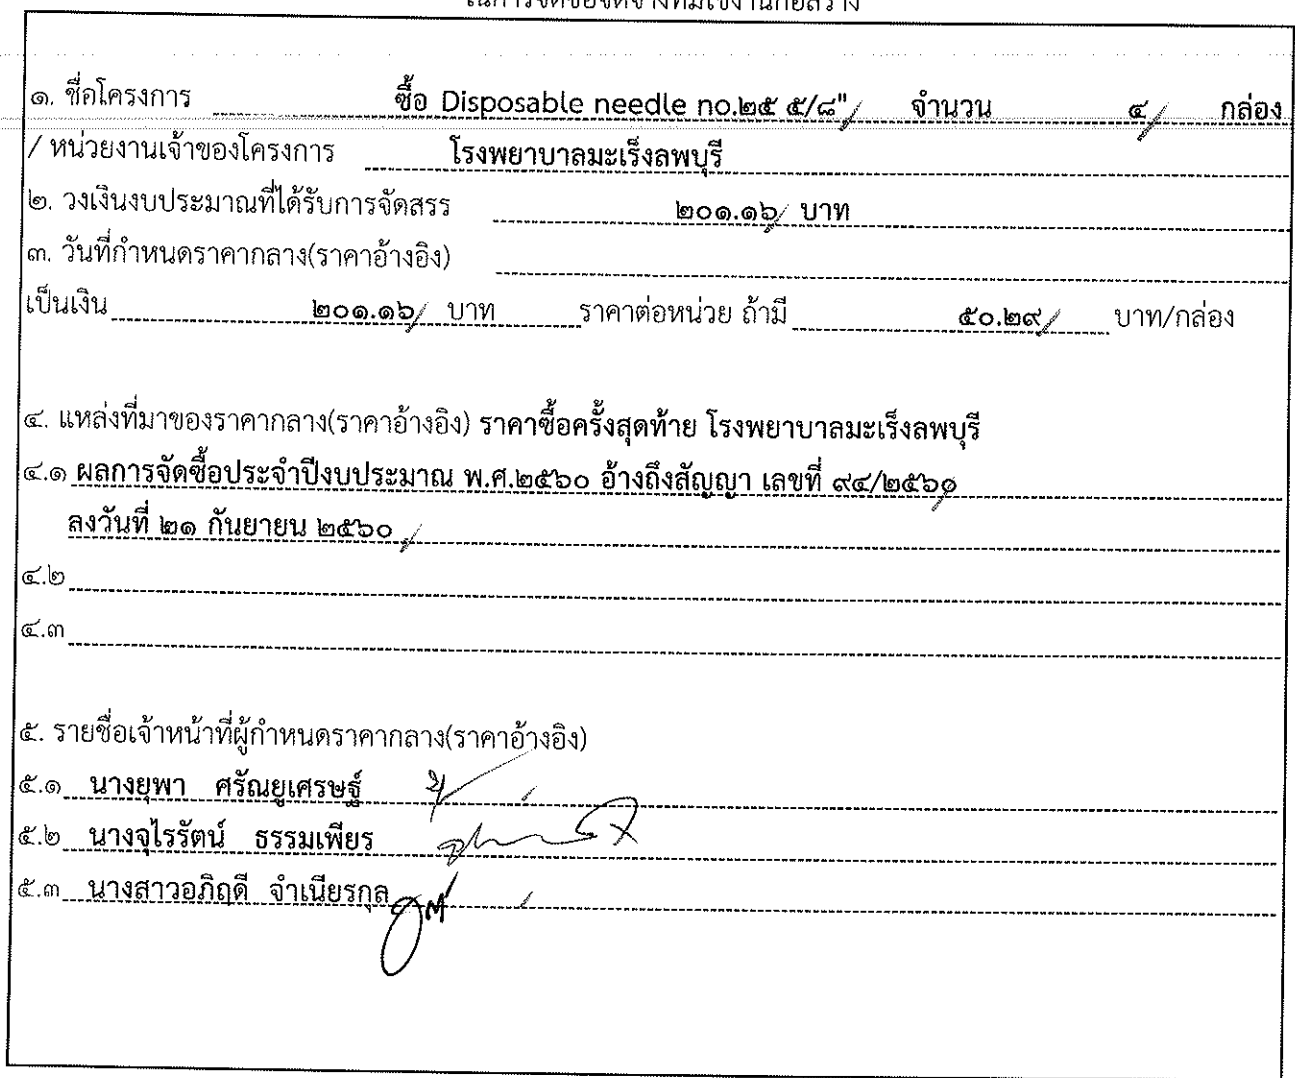 ในการจัดซื้อจัดจ้างที่มิใช่งานก่อสร้าง
๑. ชื่อโครงการ ซื้อ Disposable needle no.๒๕ ๕/๘" จำนวน ๔ กล่อง
/ หน่วยงานเจ้าของโครงการ โรงพยาบาลมะเร็งลพบุรี
๒. วงเงินงบประมาณที่ได้รับการจัดสรร ๒๐๑.๑๖ บาท
๓. วันที่กำหนดราคากลาง(ราคาอ้างอิง)
เป็นเงิน ๒๐๑.๑๖ บาท ราคาต่อหน่วย ถ้ามี ๕๐.๒๙ บาท/กล่อง
๔. แหล่งที่มาของราคากลาง(ราคาอ้างอิง) ราคาซื้อครั้งสุดท้าย โรงพยาบาลมะเร็งลพบุรี
๔.๑ ผลการจัดซื้อประจำปีงบประมาณ พ.ศ.๒๕๖๐ อ้างถึงสัญญา เลขที่ ๙๔/๒๕๖๑
ลงวันที่ ๒๑ กันยายน ๒๕๖๐
๔.๒
๔.๓
๕. รายชื่อเจ้าหน้าที่ผู้กำหนดราคากลาง(ราคาอ้างอิง)
๕.๑ นางยุพา ศรัณยูเศรษฐ์
๕.๒ นางจุไรรัตน์ ธรรมเพียร
๕.๓ นางสาวอภิฤดี จำเนียรกุล